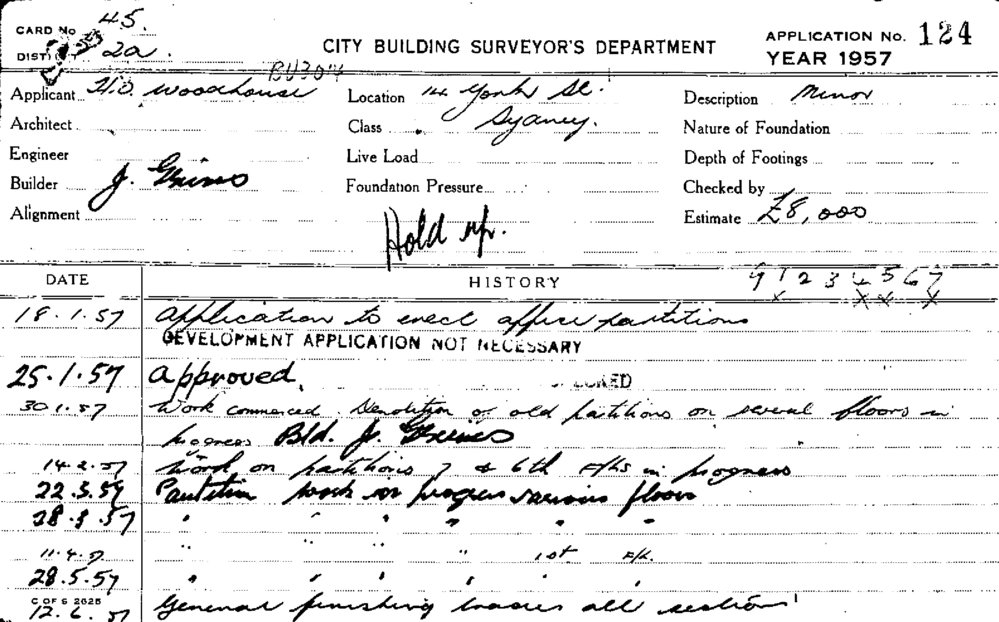 CARD No 45.
DISTICT 2a.
CITY BUILDING SURVEYOR'S DEPARTMENT
APPLICATION No. 124
YEAR 1957
BU304
Applicant H.D. Woodhouse
Location 14 York St.
Description Minor
Architect
Class Sydney.
Nature of Foundation
Engineer
Live Load
Depth of Footings
Builder J. Grimes
Foundation Pressure
Checked by
Alignment
Hold up.
Estimate £8,000
DATE
HISTORY
9 1 2 3 4 5 6 7
18.1.57 Application to erect office partitions
DEVELOPMENT APPLICATION NOT NECESSARY
25.1.57 Approved.
30.1.57 Work commenced. Demolition of old partitions on several floors in
progress Bld. J. Grimes
14.2.57 Work on partitions 7 & 6th F/Ls in progress
22.3.57 Partition work in progress various floors
28.3.57 " " " " " "
11.4.57 " " " " 1st F/L.
28.5.57 " " " " " "
C OF S 2625
12.6.57 General finishing trades all sections